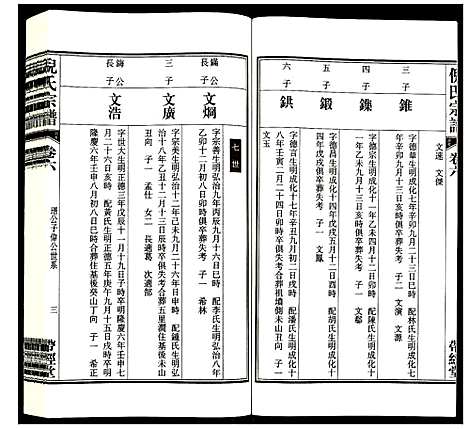 倪氏宗譜
卷六
文達 文傑
三子
錐
字德華生明成化
九年八月十三日亥時俱卒葬失考 子二 文演 文源
四子
鏁
字德宗生明成化十一年乙未四月十二日卯時 配陳氏生明成化十
一年乙未九月十三日亥時俱卒葬失考 子一 文鄢
五子
鍛
字德昌生明成化十四年戊戌五月十二日酉時 配胡氏生明成化十
四年戊戌 俱卒葬失考 子一 文鳳
六子
鉷
字德言生明成化十七年辛丑九月初二日戌時 配潘氏生明成化十
八年壬寅二月二十四日卯時俱卒失考合葬祖墳側未山丑向 子一
文玉
七世
鏋公
長子
文烱
字宗善生明弘治九年丙辰九月十六日巳時 配李氏生明弘治八年
乙卯十二月初八日卯時俱卒葬失考 子一 希林
三子
文廣
字宗 生明弘治十二年己未九月二十六日申時 配鍾氏生明弘
治 三日辰時俱卒失考合葬五里澗住基後未山
丑向 子一 孟仕 女二 長適葛 次適鄒
鋂公
長子
文浩
字世大生明正德三年戊辰十一月十九日子時卒明隆慶六年壬申七
月初八日辰時 配黃氏生明正德五年庚午九月十五日戌時卒明
隆慶六年壬申八月初八日巳時合葬住基後癸山丁向 子一 希正
倪氏宗譜
卷六
璟公子偉公世系
三
帶經堂
帶經堂